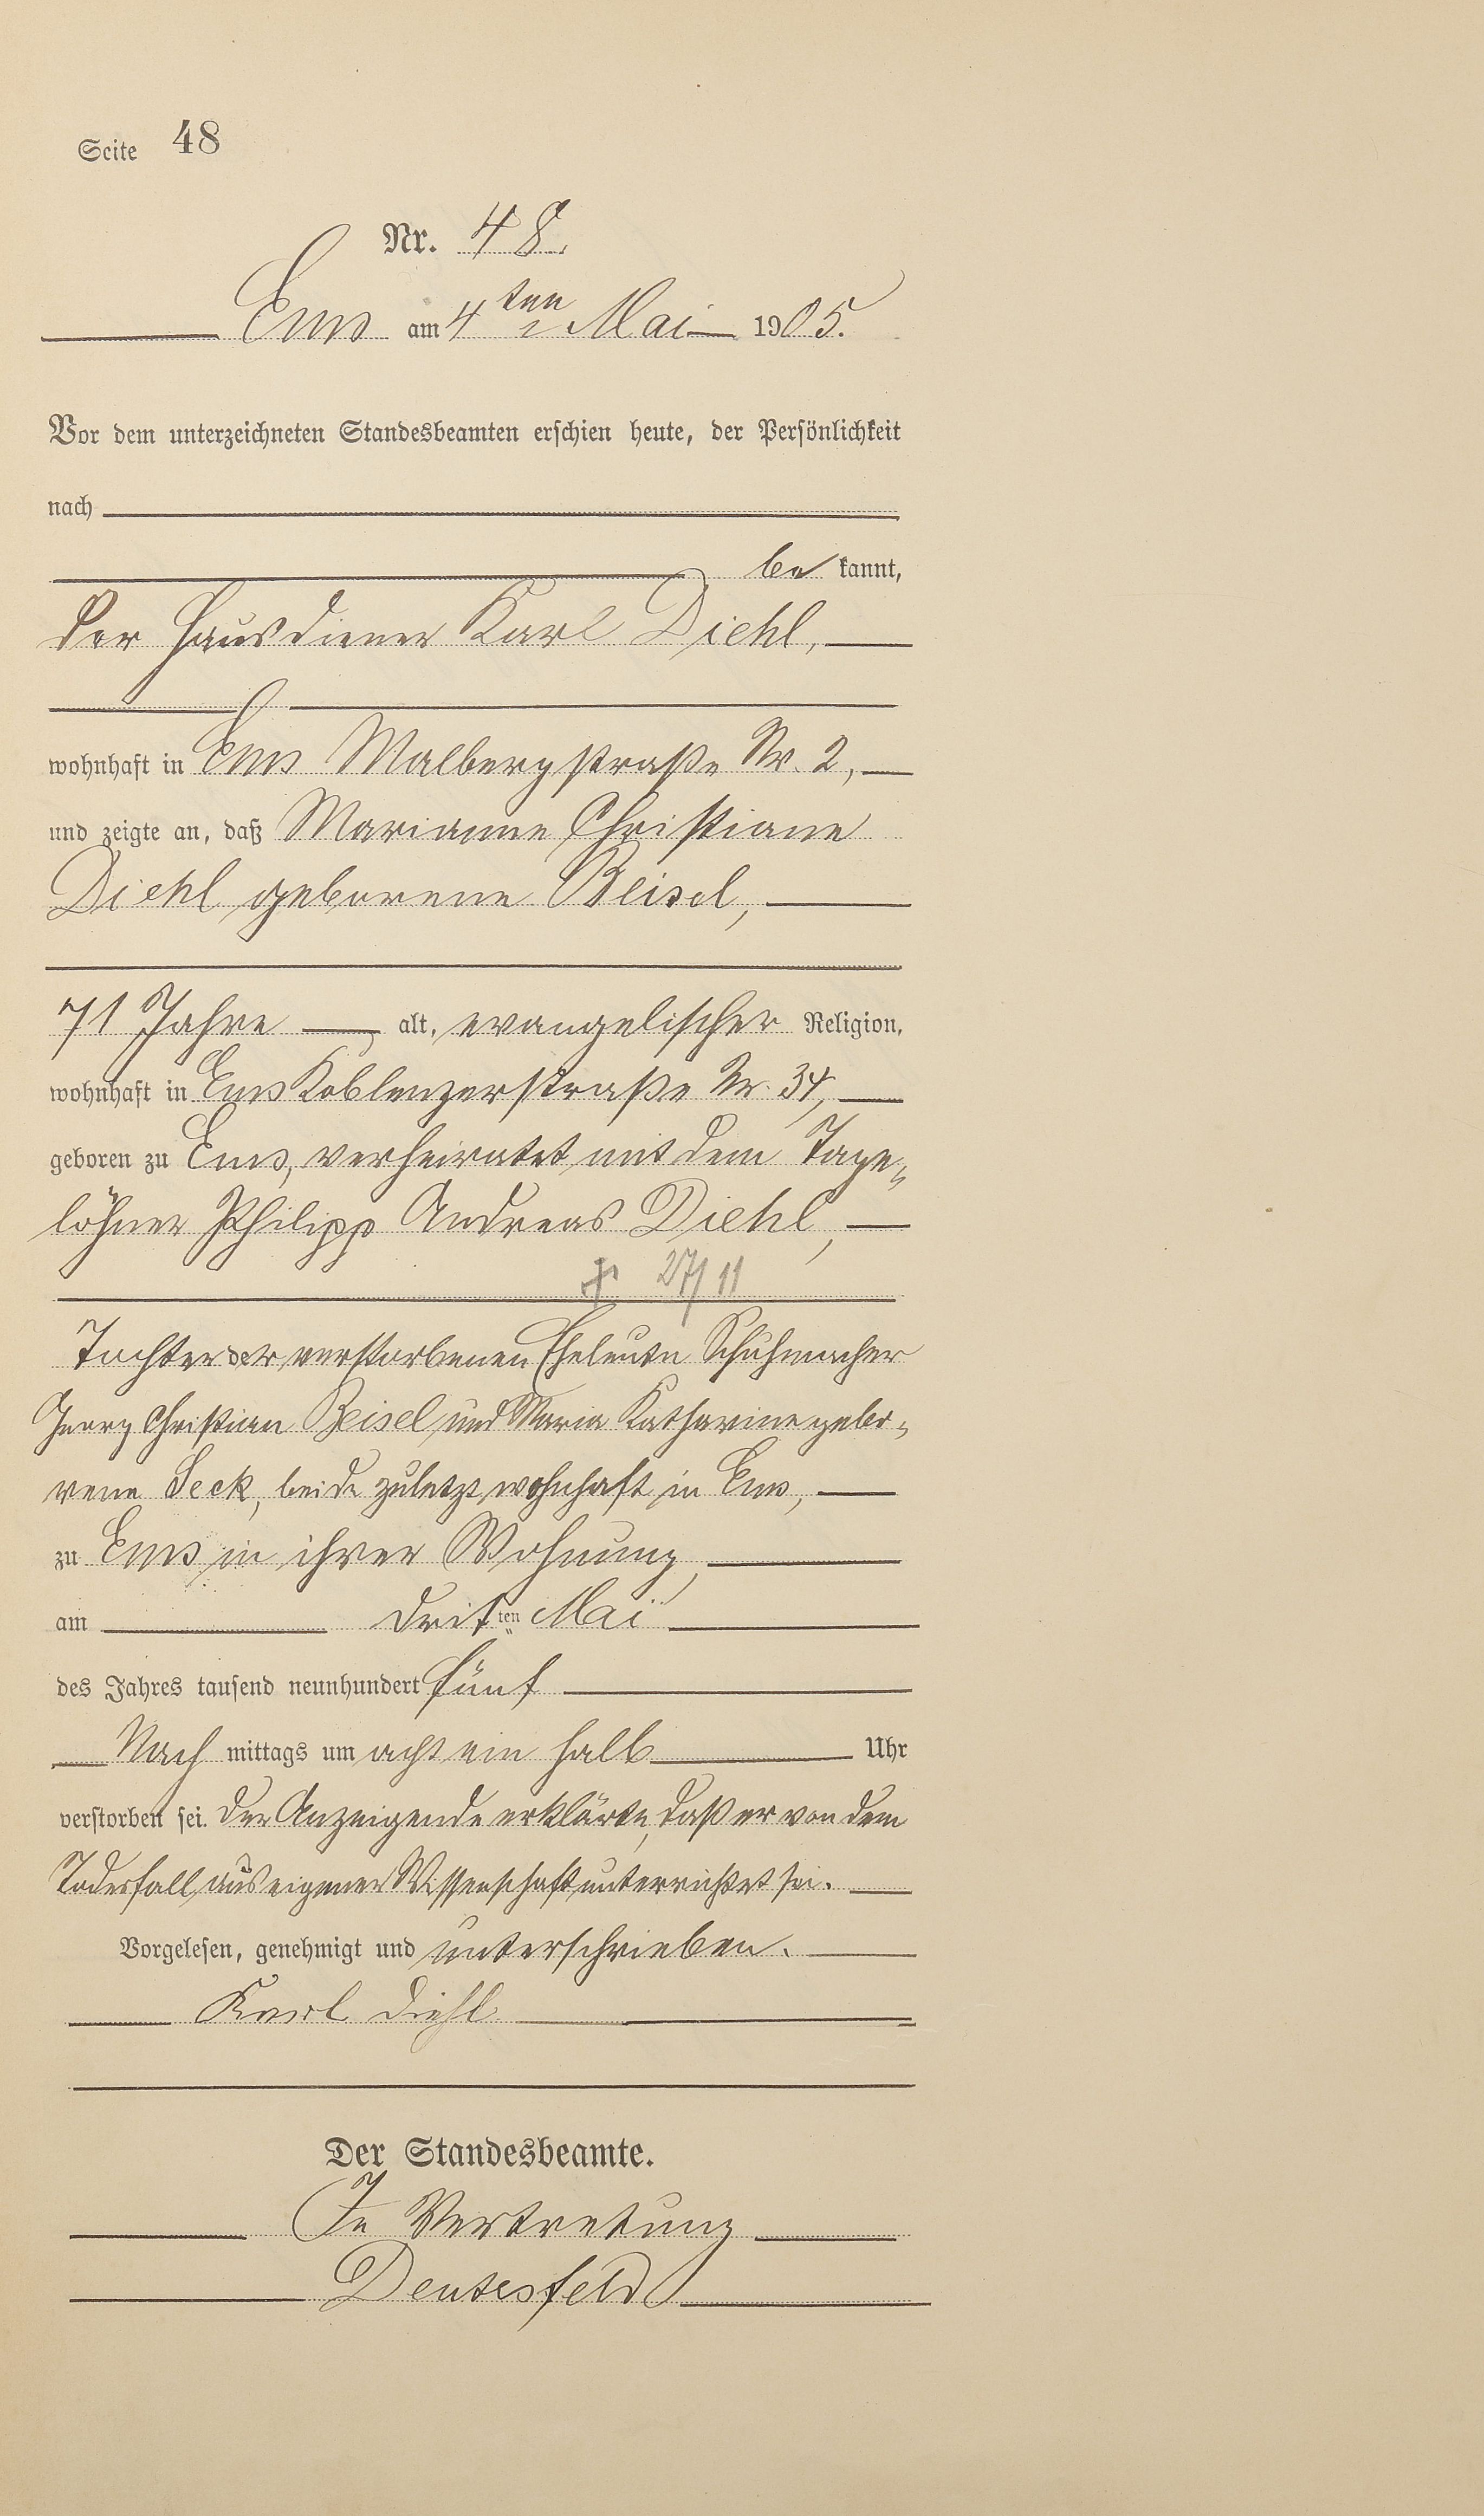 Seite 48
Nr. 48.
Ems am 4ten Mai 1905.
Vor dem unterzeichneten Standesbeamten erschien heute, der Persönlichkeit
nach
be kannt,
der Hausdiener Karl Diehl,
wohnhaft in Ems Malbergstraße Nr. 2,
und zeigte an, daß Marianne Christiane
Diehl geborene Beisel,
71 Jahre alt, evangelischer Religion,
wohnhaft in Ems Koblenzerstraße Nr. 34,
geboren zu Ems, verheiratet mit dem Tage„
löhner Philipp Andreas Diehl,
27/11
Tochter der verstorbenen Eheleute Schuhmacher
Georg Christian Beisel und Maria Katharine gebo„
rene Seck, beide zuletzt wohnhaft in Ems,
zu Ems in ihrer Wohnung,
am dritten Mai
des Jahres tausend neunhundert fünf
Nach mittags um acht ein halb Uhr
verstorben sei. Der Anzeigende erklärte, daß er von dem
Todesfall aus eigener Wissenschaft unterrichtet sei.
Vorgelesen, genehmigt und unterschrieben.
Karl Diehl
Der Standesbeamte.
In Vertretung
Deutesfeld